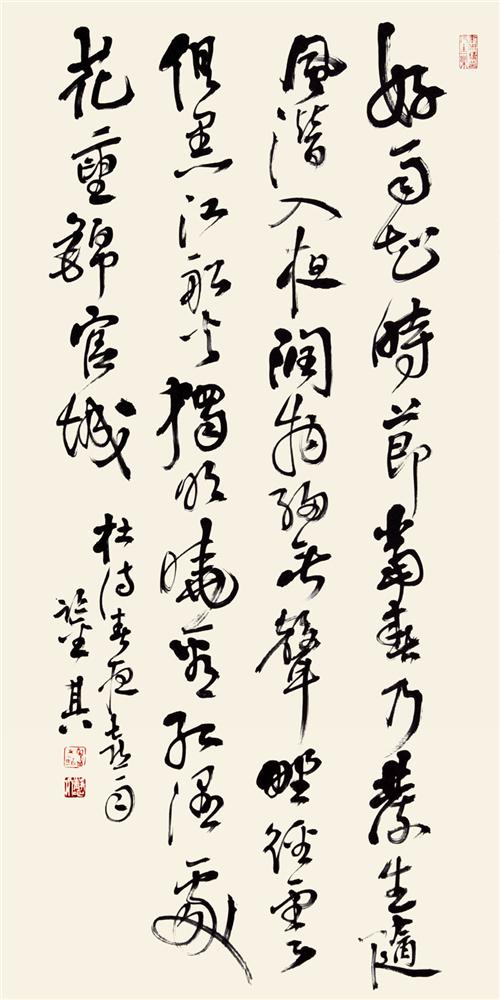 好雨知時節當春乃發生隨
風潛入夜潤物細無聲野徑雲
俱黑江船火獨明曉看紅濕處
花重錦官城
杜詩春夜喜雨
其